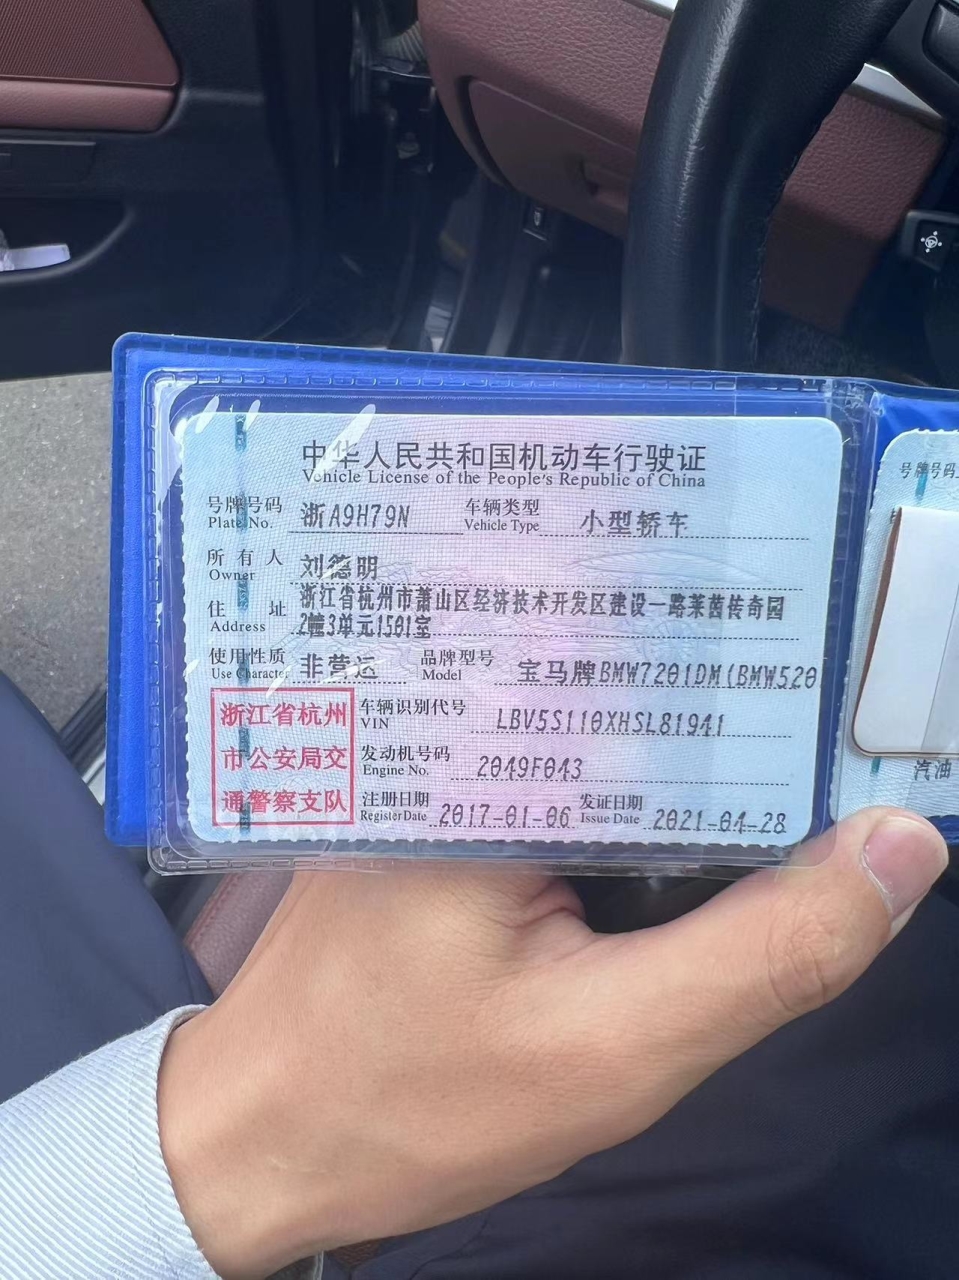 中华人民共和国机动车行驶证
Vehicle License of the People's Republic of China
号牌号码 浙A9H79N 车辆类型 小型轿车
Plate No. Vehicle Type
所有人 刘德明
Owner
住址 浙江省杭州市萧山区经济技术开发区建设一路莱茵传奇园
Address 2幢3单元1501室
使用性质 非营运 品牌型号 宝马牌BMW7201DM(BMW520
Use Character Model
浙江省杭州
市公安局交
通警察支队
车辆识别代号 LBV5S110XHSL81941
VIN
发动机号码 2049F043
Engine No.
注册日期 2017-01-06 发证日期 2021-04-28
Register Date Issue Date
号牌号码
汽油